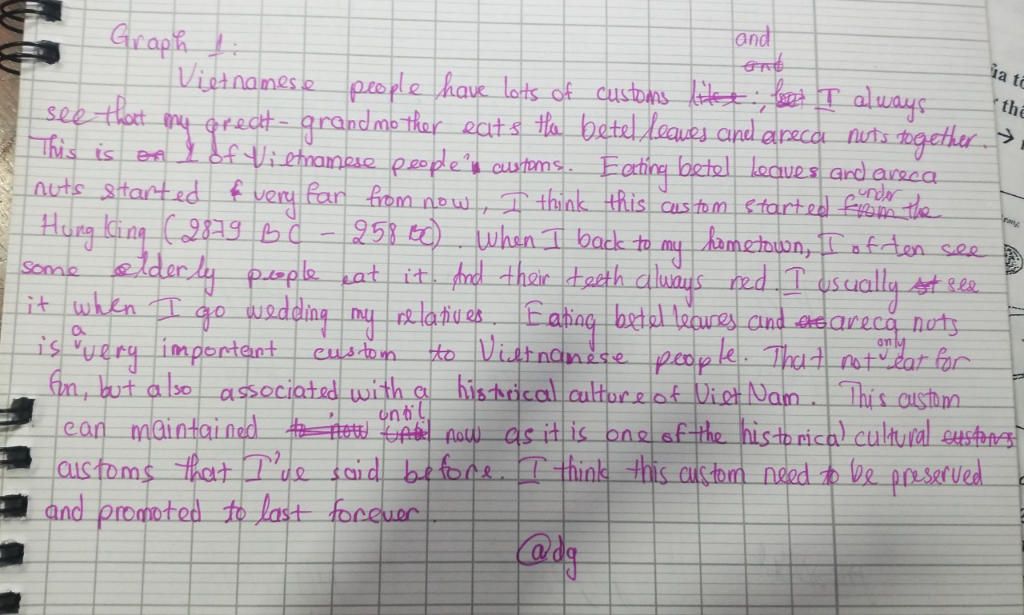 Graph 1:
and
Vietnamese people have lots of customs ; I always
see that my great-grandmother eats the betel leaves and areca nuts together.
This is 1 of Vietnamese people's customs. Eating betel leaves and areca
nuts started very far from now, I think this custom started under the
Hung King (2879 BC - 258 BC). When I back to my hometown, I often see
some elderly people eat it. And their teeth always red. I usually see
it when I go wedding my relatives. Eating betel leaves and areca nuts
is a very important custom to Vietnamese people. That not only eat for
fun, but also associated with a historical culture of Viet Nam. This custom
can maintained until now as it is one of the historical cultural
customs that I've said before. I think this custom need to be preserved
and promoted to last forever.
@dg
ủa tô
thể
→